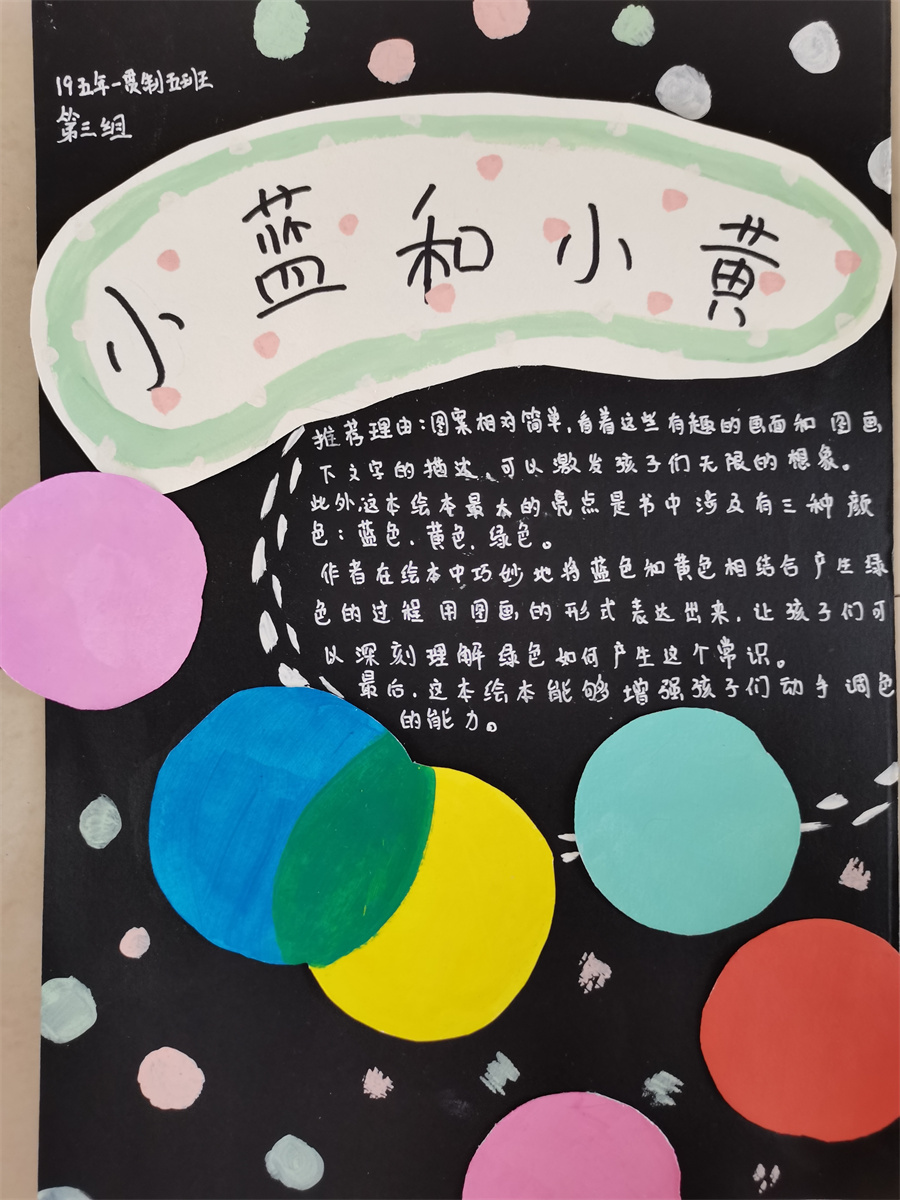 19五年一贯制五班
第三组
小蓝和小黄
推荐理由：图案相对简单，看着这些有趣的画面和图画
下文字的描述，可以激发孩子们无限的想象。
此外，这本绘本最大的亮点是书中涉及有三种颜
色：蓝色，黄色，绿色。
作者在绘本中巧妙地将蓝色和黄色相结合产生绿
色的过程用图画的形式表达出来，让孩子们可
以深刻理解绿色如何产生这个常识。
最后，这本绘本能够增强孩子们动手调色
的能力。